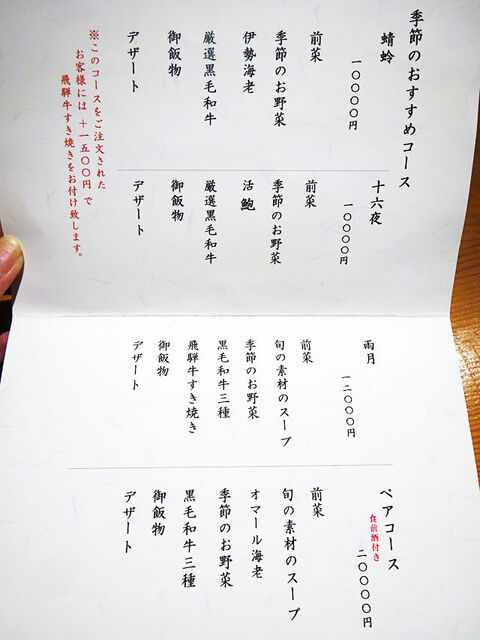 季節のおすすめコース
蜻蛉
一〇〇〇〇円
前菜
季節のお野菜
伊勢海老
厳選黒毛和牛
御飯物
デザート
※このコースをご注文された
お客様には +一五〇〇円で
飛騨牛すき焼きをお付け致します。
十六夜
一〇〇〇〇円
前菜
季節のお野菜
活鮑
厳選黒毛和牛
御飯物
デザート
雨月
一二〇〇〇円
前菜
旬の素材のスープ
季節のお野菜
黒毛和牛三種
飛騨牛すき焼き
御飯物
デザート
ペアコース
食前酒付き
二〇〇〇〇円
前菜
旬の素材のスープ
オマール海老
季節のお野菜
黒毛和牛三種
御飯物
デザート